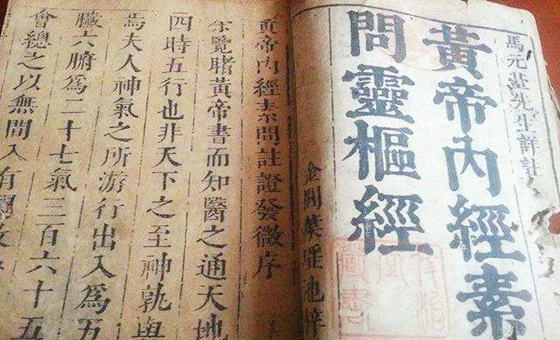 馬元臺先生詳註
黃帝內經素
問靈樞經
金閶葉瑤池梓
黃帝內經素問註證發微序
余覽睹黃帝書而知醫之通天地
四時五行也非天下之至神孰與
焉夫人神氣之所游行出入為五
臟六腑為二十七氣三百六十五
會總之以無間入有